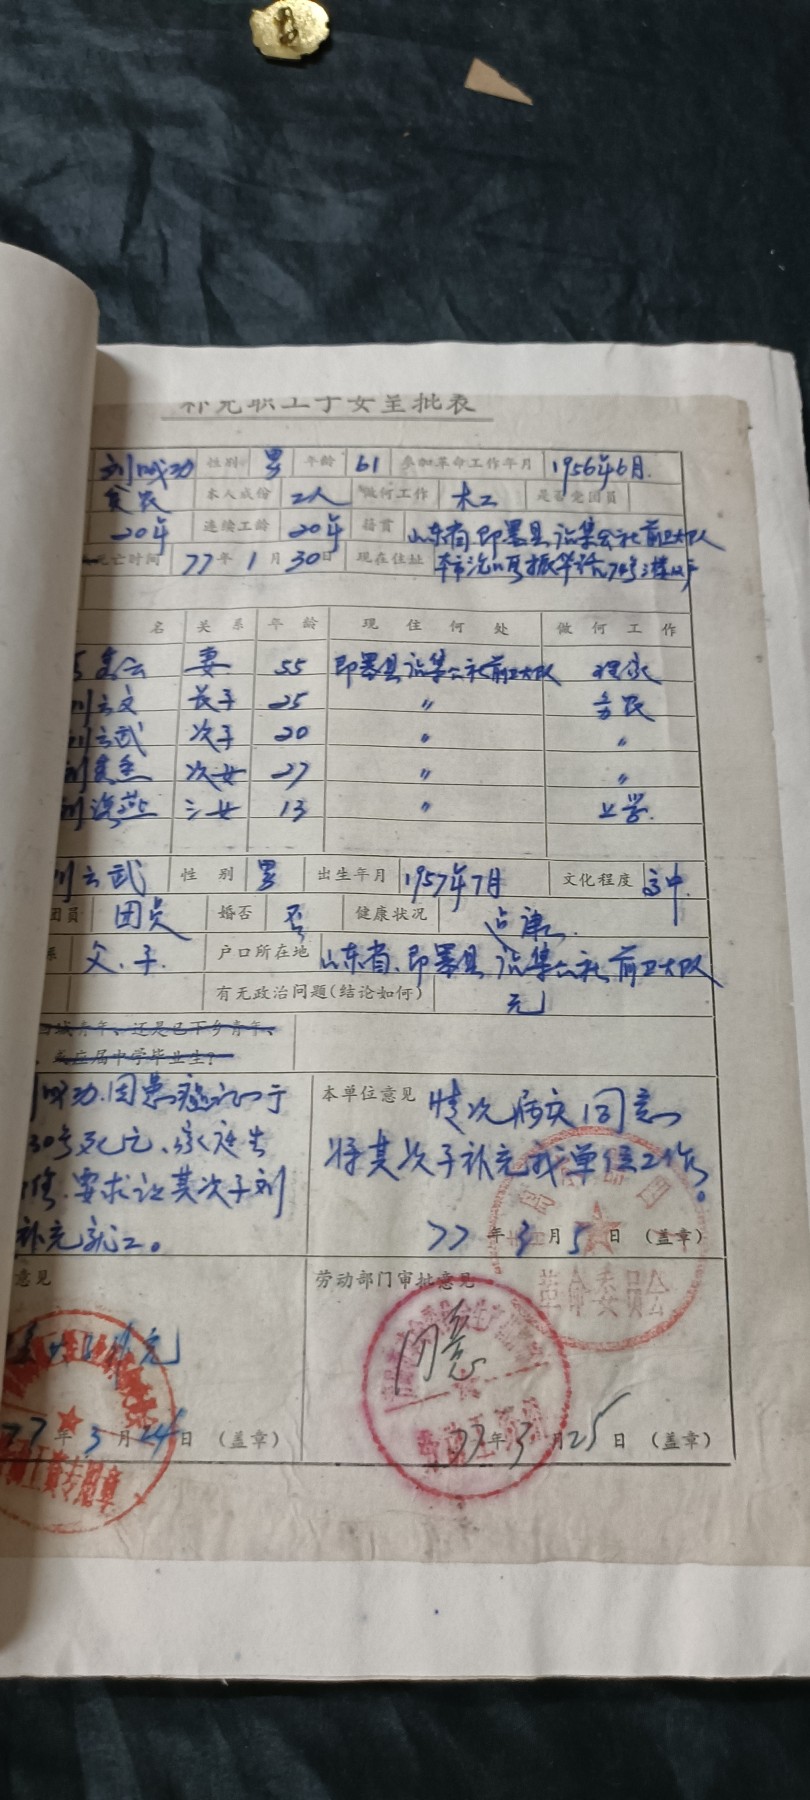 补充职工子女呈批表
刘成功 性别 男 年龄 61 参加革命工作年月 1956年6月.
贫农 本人成份 工人 做何工作 木工 是否党团员
20年 连续工龄 20年 籍贯 山东省即墨县 集公社前卫大队
死亡时间 77年1月30日 现在住址 本市
名 关系 年龄 现住何处 做何工作
云 妻 55 即墨县 集公社前卫大队
刘云文 长子 25 〃 务农
刘云武 次子 20 〃 〃
刘 次女 27 〃 〃
刘 燕 三女 13 〃 上学.
刘云武 性别 男 出生年月 1957年7月 文化程度 高中.
团员 团员 婚否 否 健康状况 健康.
系 父.子. 户口所在地 山东省.即墨县 集公社前卫大队
有无政治问题(结论如何) 无
城青年、还是已下乡青年、
或应届中学毕业生?
成功.因患癌症于
30号死亡、家庭生
要求让其次子刘
补充就工。
本单位意见 情况属实同意
将其次子补充我单位工作。
77年3月5日 (盖章)
革命委员会
意见
补充
77年3月24日 (盖章)
工资专用章
劳动部门审批意见
同意
77年3月25日 (盖章)